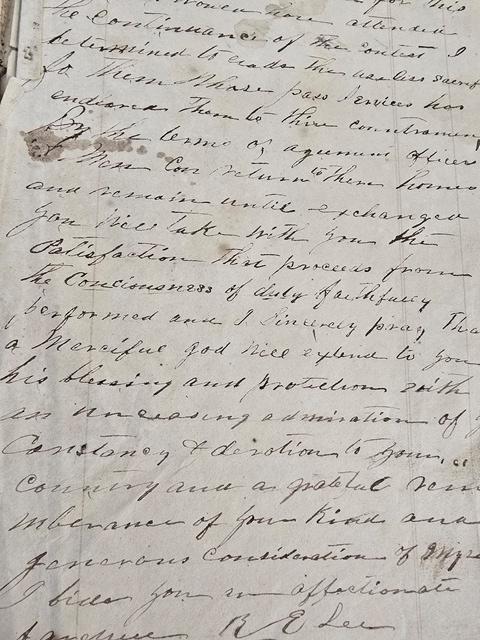 for this
have attended
the Continuance of the contest I
determined to evade the useless sacrif
to Them Whose pass Services has
endeared them to thire countramen
By the terms of agument officers
& Men Can return to there homes
and remain until exchanged
you Will take With you the
Satisfaction that proceeds from
the Conciousness of duty faithfully
performed and I Sincerely pray Tha
a Merciful god Will extend to you
his blessing and protection With
an unceasing admiration of y
Constancy & devotion to your
Country and a grateful rem
mberance of your Kind and
generous Consideration of Myse
I bide you an affectionate
R E Lee